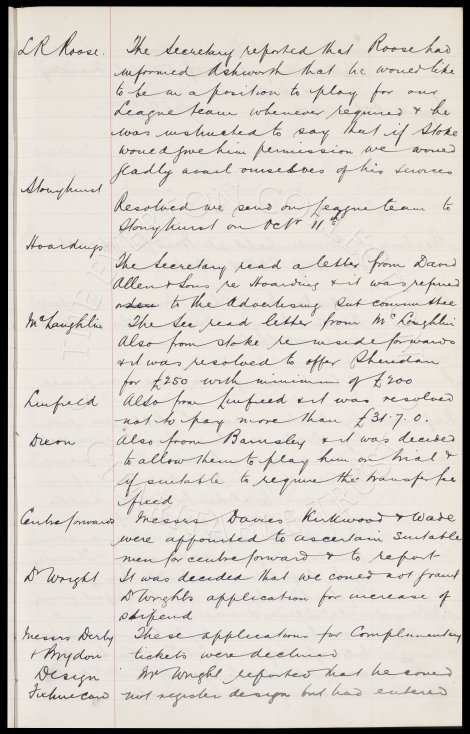 L R Roose. The Secretary reported that Roose had
informed Ashworth that he would like
to be in a position to play for our
League team whenever required & he
was instructed to say that if Stoke
would give him permission we would
gladly avail ourselves of his services
Stonyhurst
Resolved we send our League team to
Stonyhurst on Octr 11th
Hoardings
The Secretary read a letter from David
Allen & Sons re Hoarding & it was refined
to the Advertising Sub committee
McLaughlin The Sec read letter from McLoughlin
Also from Stoke re inside forwards
& it was resolved to offer Sheridan
for £250 with minimum of £200
Linfield Also from Linfield & it was resolved
not to pay more than £31.7.0.
Dixon Also from Barnsley & it was decided
to allow them to play him on trial &
if suitable to require the transfer fee
fixed
Centre forwards Messrs Davies Kirkwood & Wade
were appointed to ascertain suitable
men for centre forward & to report
Dr Wright It was decided that we could not grant
Dr Wrights application for increase of
stipend
Messrs Derby These applications for Complimentary
& Brydon tickets were declined
Design Mr Wright reported that he could
Fixture card not register design but had entered